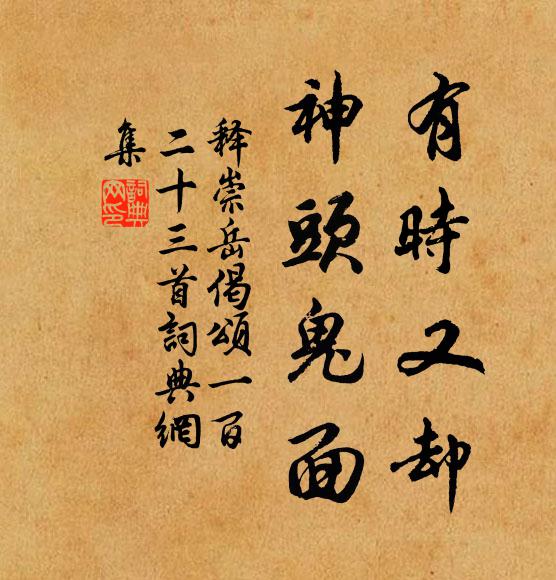 有時又却
神頭鬼面
释崇岳偈頌一百
二十三首詞典網
集
詞典
网印